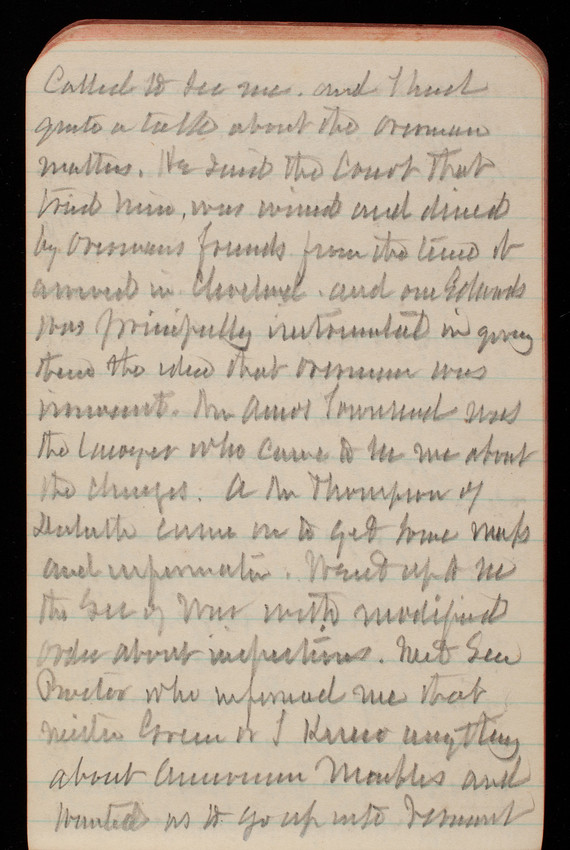 Called to see me. and I had
quite a talk about the Overman
matters. He said the Court that
tried him, was wined and dined
by Overmans friends from the time it
arrived in Cleveland. and one Edwards
was principally instrumental in giving
them the idea that Overman was
innocent. Mr Amos Townsend was
the lawyer who came to see me about
the charges. A Mr Thompson of
Duluth came in to get some maps
and information. Went up to see
the Sec of War with modified
order about inspections. Met Sec
Proctor who informed me that
neither Green or I knew anything
about American Marbles and
wanted us to go up into Vermont